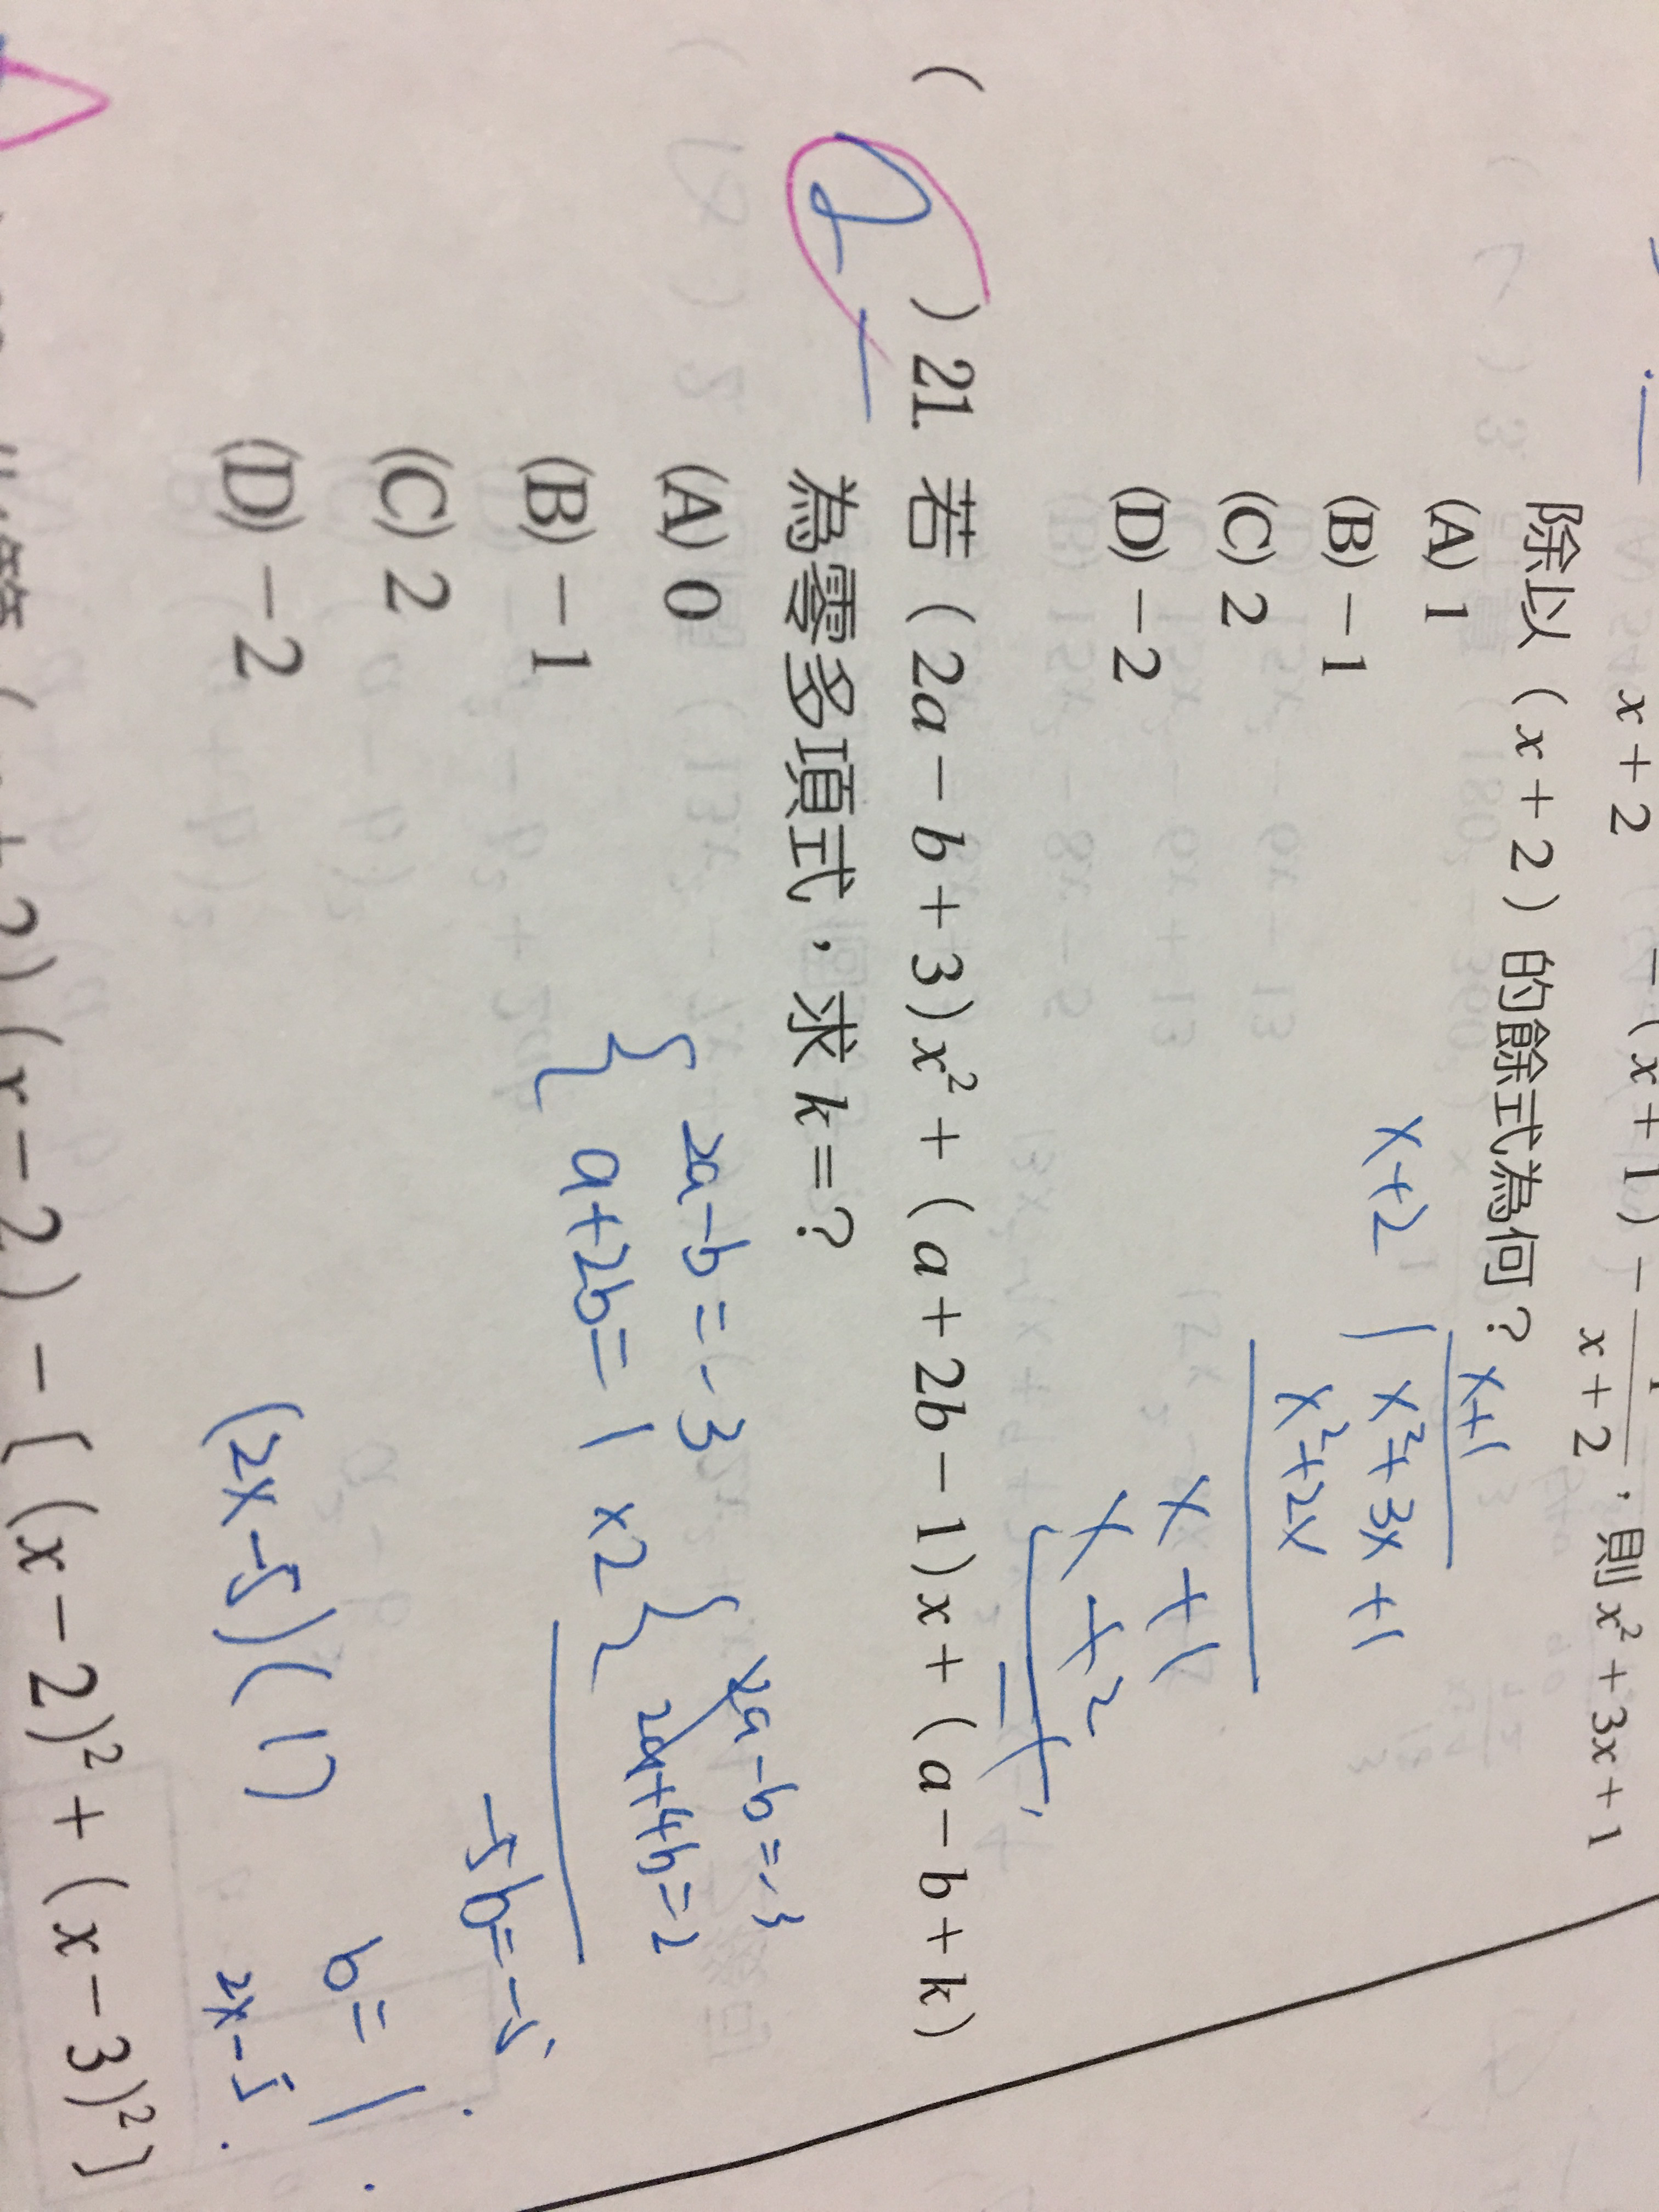 x + 2 = (x + 1) - 1/(x + 2)，則 x² + 3x + 1
除以（x + 2）的餘式為何？
(A) 1
(B) -1
(C) 2
(D) -2
x+1
x+2
x²+3x+1
x²+2x
x+1
x+2
-1
( ) 21. 若（2a - b + 3）x² +（a + 2b - 1）x +（a - b + k）
為零多項式，求 k = ？
(A) 0
(B) -1
(C) 2
(D) -2
2a-b=-3
a+2b=1 ×2
2a-b=-3
2a+4b=2
-5b=-5
b=1
(2x-5)(
2x-5
+ 2)(x - 2) - [(x - 2)² + (x - 3)²]